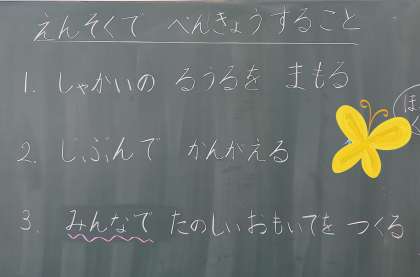 えんそくで べんきょうすること
1. しゃかいの るうるを まもる
2. じぶんで かんがえる
3. みんなで たのしいおもいでを つくる
ほ